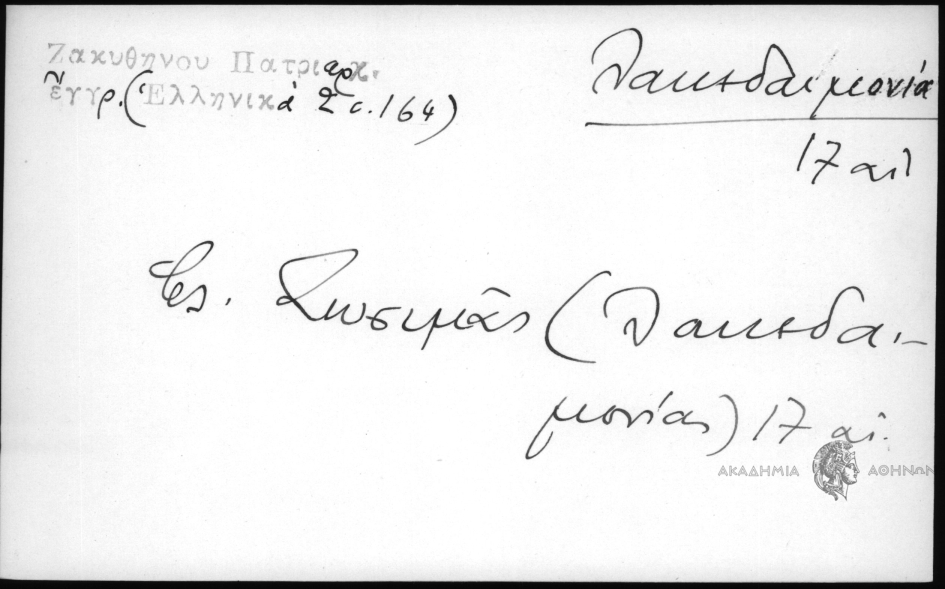 Ζακυθηνου Πατριαρχ.
ἔγγρ. (Ἑλληνικά 2 σ. 164)
Λακεδαιμονία
17 αἰ
Ζωσιμᾶς (Λακεδαι-
μονίας) 17 αἰ.
ΑΚΑΔΗΜΙΑ ΑΘΗΝΩΝ